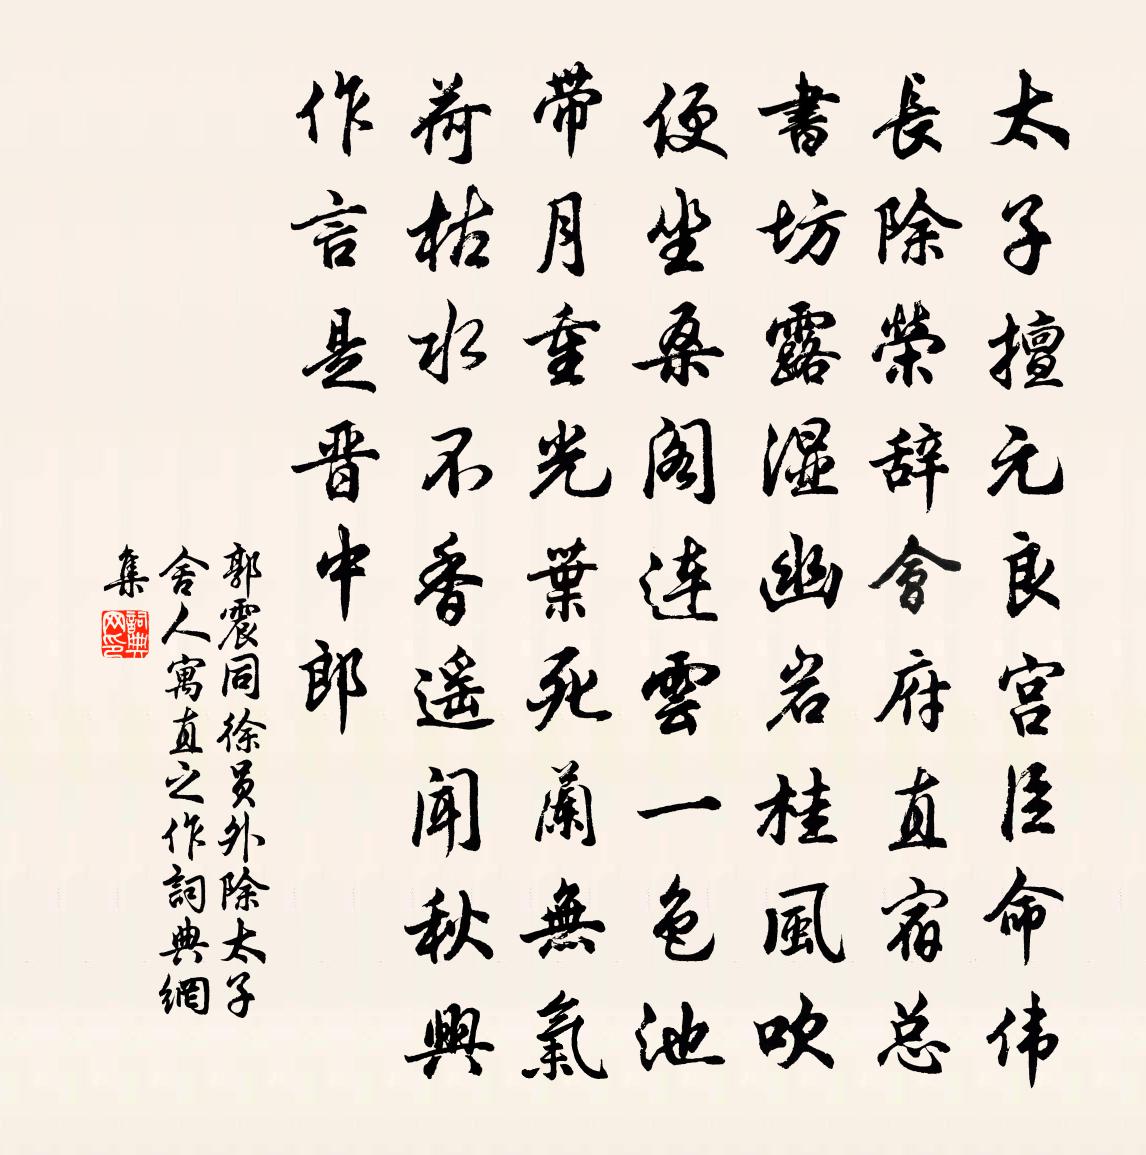 太子擅元良宫臣命伟
長除榮辞會府直宿总
書坊露湿幽岩桂風吹
便坐桑阁連雲一色池
带月重光葉死蘭無氣
荷枯水不香遥闻秋興
作言是晋中郎
郭震同徐员外除太子
舍人寓直之作詞典網
集
詞典网印